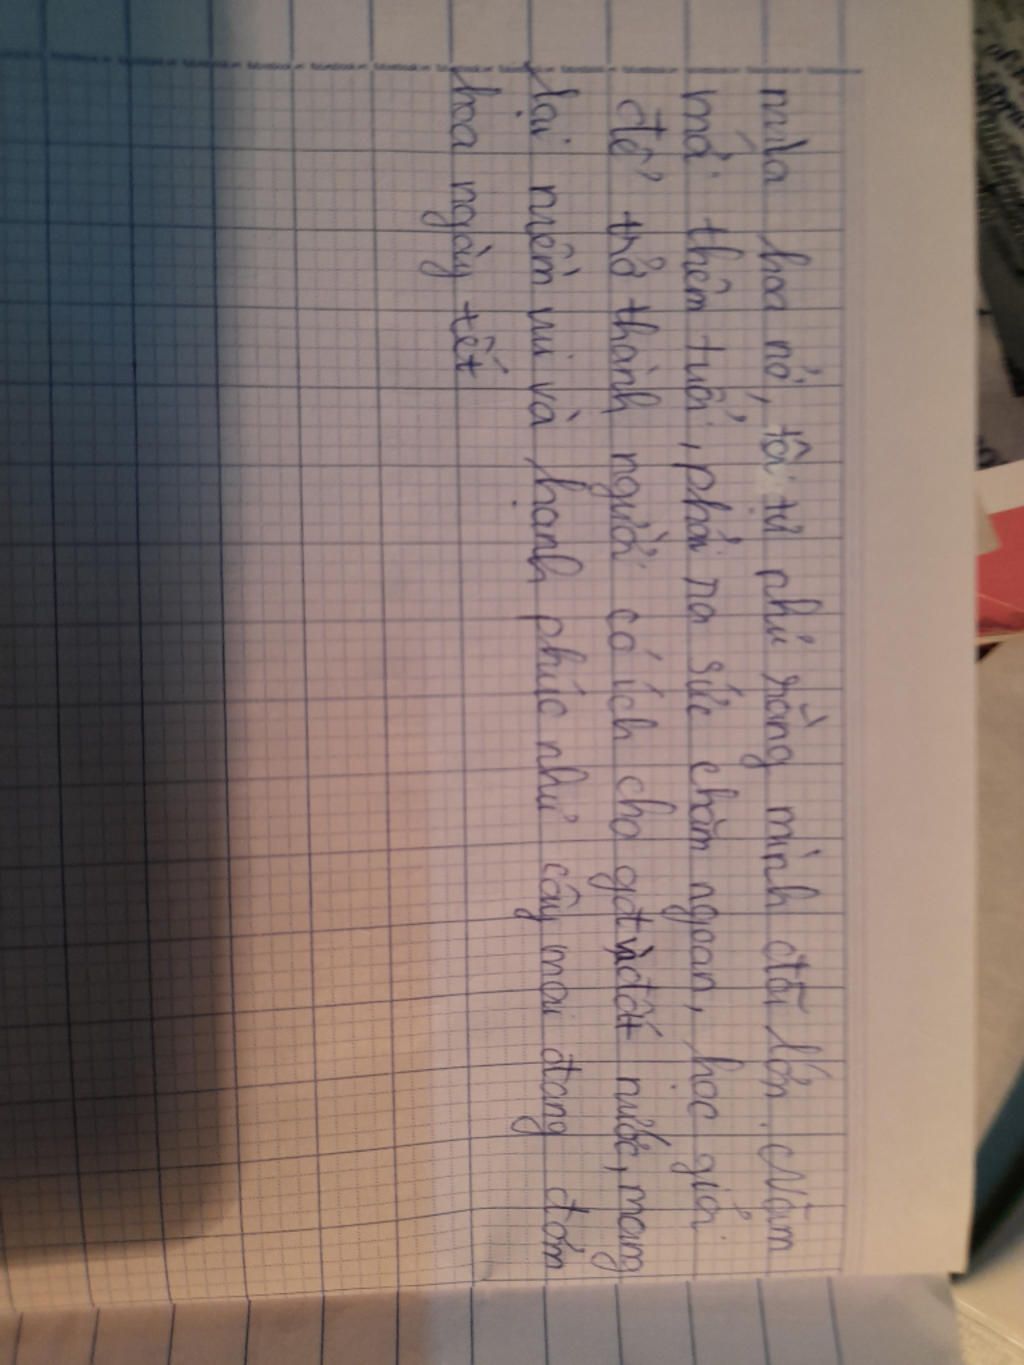 mùa hoa nở, tôi tự phụ rằng mình đã lớn. Năm
mới thêm tuổi, phải ra sức chăm ngoan, học giỏi
để trở thành người có ích cho gđ và đất nước, mang
lại niềm vui và hạnh phúc như cây mai đang đơm
hoa ngày tết